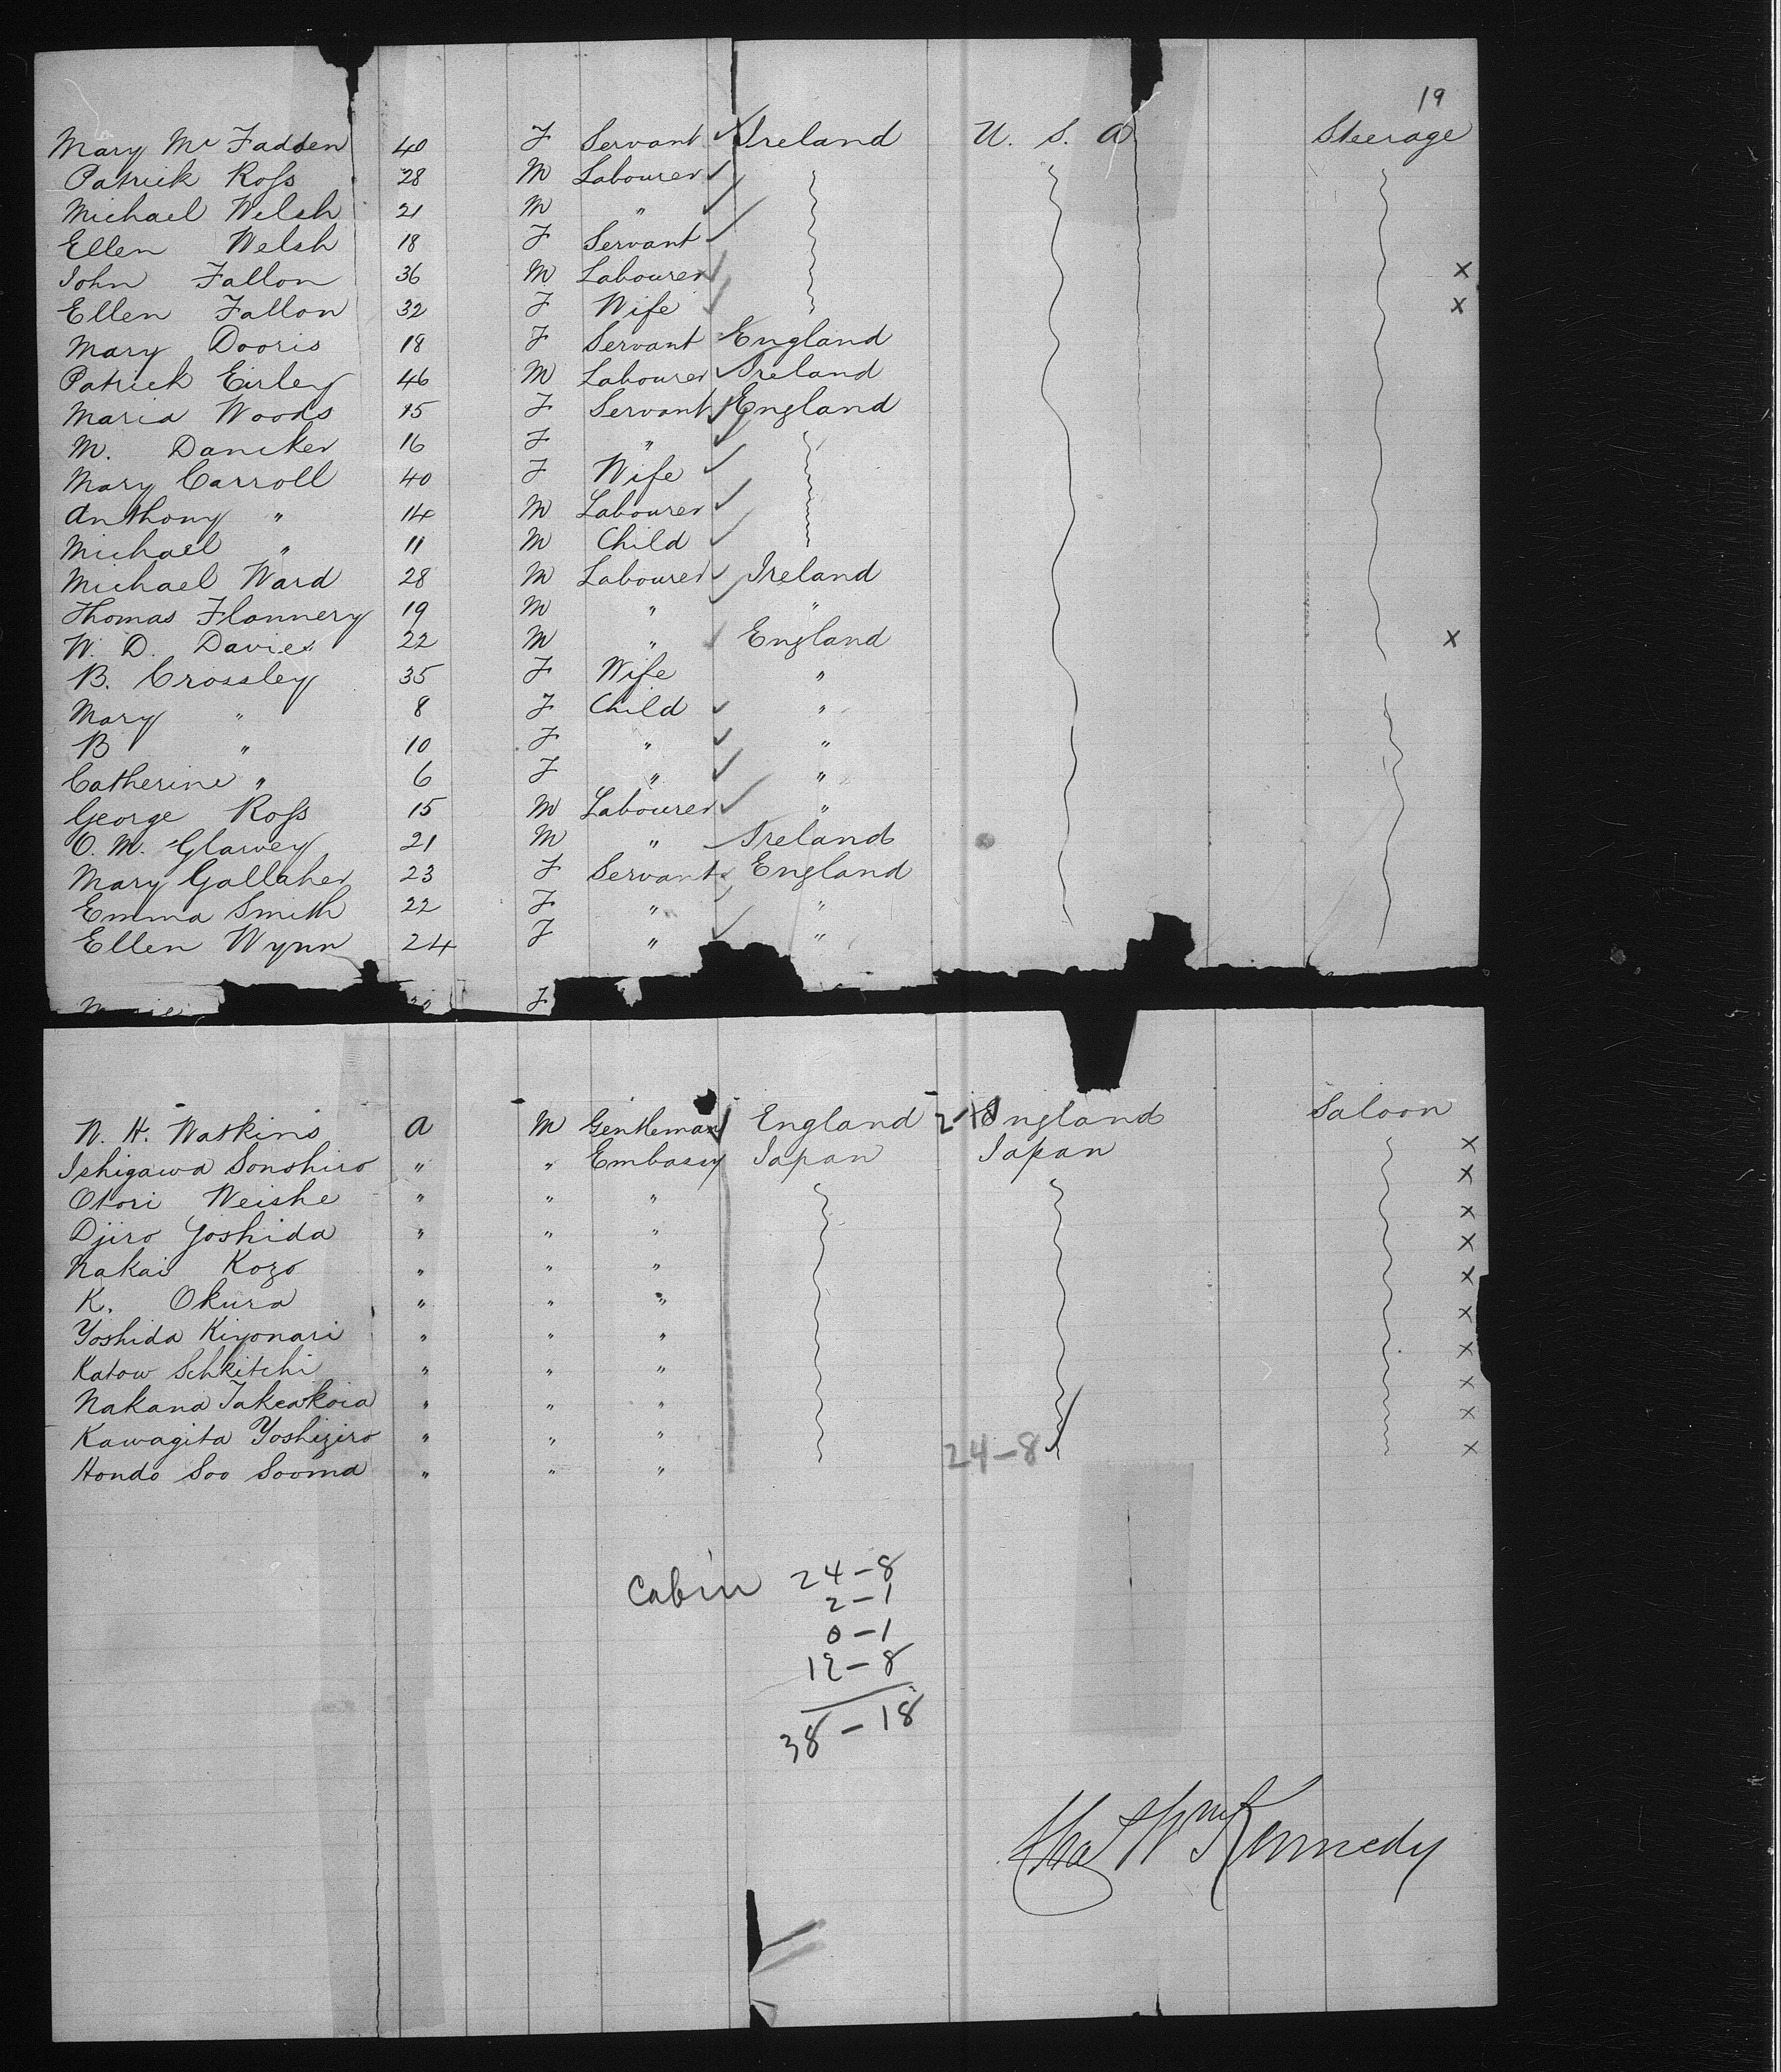 19
Mary Mc Fadden 40 F Servant Ireland U. S. A Steerage
Patrick Ross 28 M Labourer
Michael Welsh 21 M "
Ellen Welsh 18 F Servant
John Fallon 36 M Labourer x
Ellen Fallon 32 F Wife x
Mary Dooris 18 F Servant England
Patrick Eirley 46 M Labourer Ireland
Maria Woods 15 F Servant England
M. Dancker 16 F "
Mary Carroll 40 F Wife
Anthony " 14 M Labourer
Michael " 11 M Child
Michael Ward 28 M Labourer Ireland
Thomas Flannery 19 M " "
W. D. Davies 22 M " England x
B. Crossley 35 F Wife "
Mary " 8 F Child "
B " 10 F " "
Catherine " 6 F " "
George Ross 15 M Labourer "
O. M. Glarvey 21 M " Ireland
Mary Gallaher 23 F Servant England
Emma Smith 22 F " "
Ellen Wynn 24 F " "
F
W. H. Watkins a M Gentleman England 2-1 England Saloon
Ishigawa Sonohiro " " Embassy Japan Japan x
Otori Keishe " " " x
Djiro Yoshida " " " x
Nakai Kozo " " " x
K. Okura " " " x
Yoshida Kiyonari " " " x
Katow Schkitchi " " " x
Nakana Takeakoia " " " x
Kawagita Yoshiziro " " " 24-8 x
Hondo Soo Sooma " " " x
Cabin 24-8
2-1
0-1
12-8
38-18
Kennedy